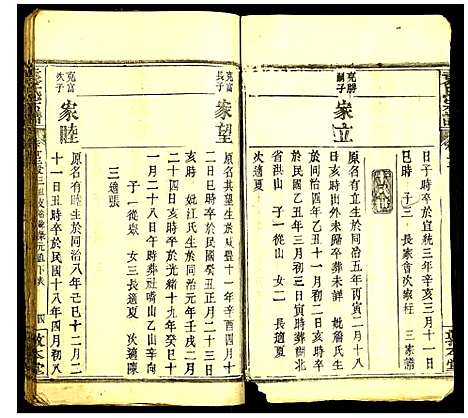 日子時卒於宣統三年辛亥三月十一日
巳時　子三　長家會次家柱　三家
克勝
嗣子
家立
原名有立生於同治五年丙寅十月十八
日亥時出外未歸卒葬未詳　妣詹氏生
於同治四年乙丑十一月初二日亥時
民國三年甲寅三月初三日亥時葬湖北
省洪山　子一從山　女二　長適夏
次適夏
克富
長子
家望
原名共望生於咸豐十一年辛酉四月十
八日戌時卒於民國二年癸丑正月二十三日
亥時　妣江氏生於同治元年壬戌二月
二十四日亥時卒於光緒十九年癸巳十
一月二十八日午時葬社嘴山乙山辛向
子一從焱　女三長適夏　次適陳
三適張
克富
次子
家睦
原名有睦生於同治八年己巳十二月二
十一日丑時卒於民國十八年四月初八
四
敦本堂